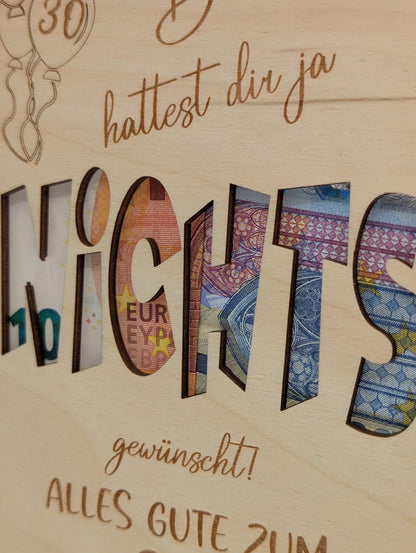 30
hattest dir ja
NiCHTS
10
EUR
EYP
gewünscht!
ALLES GUTE ZUM